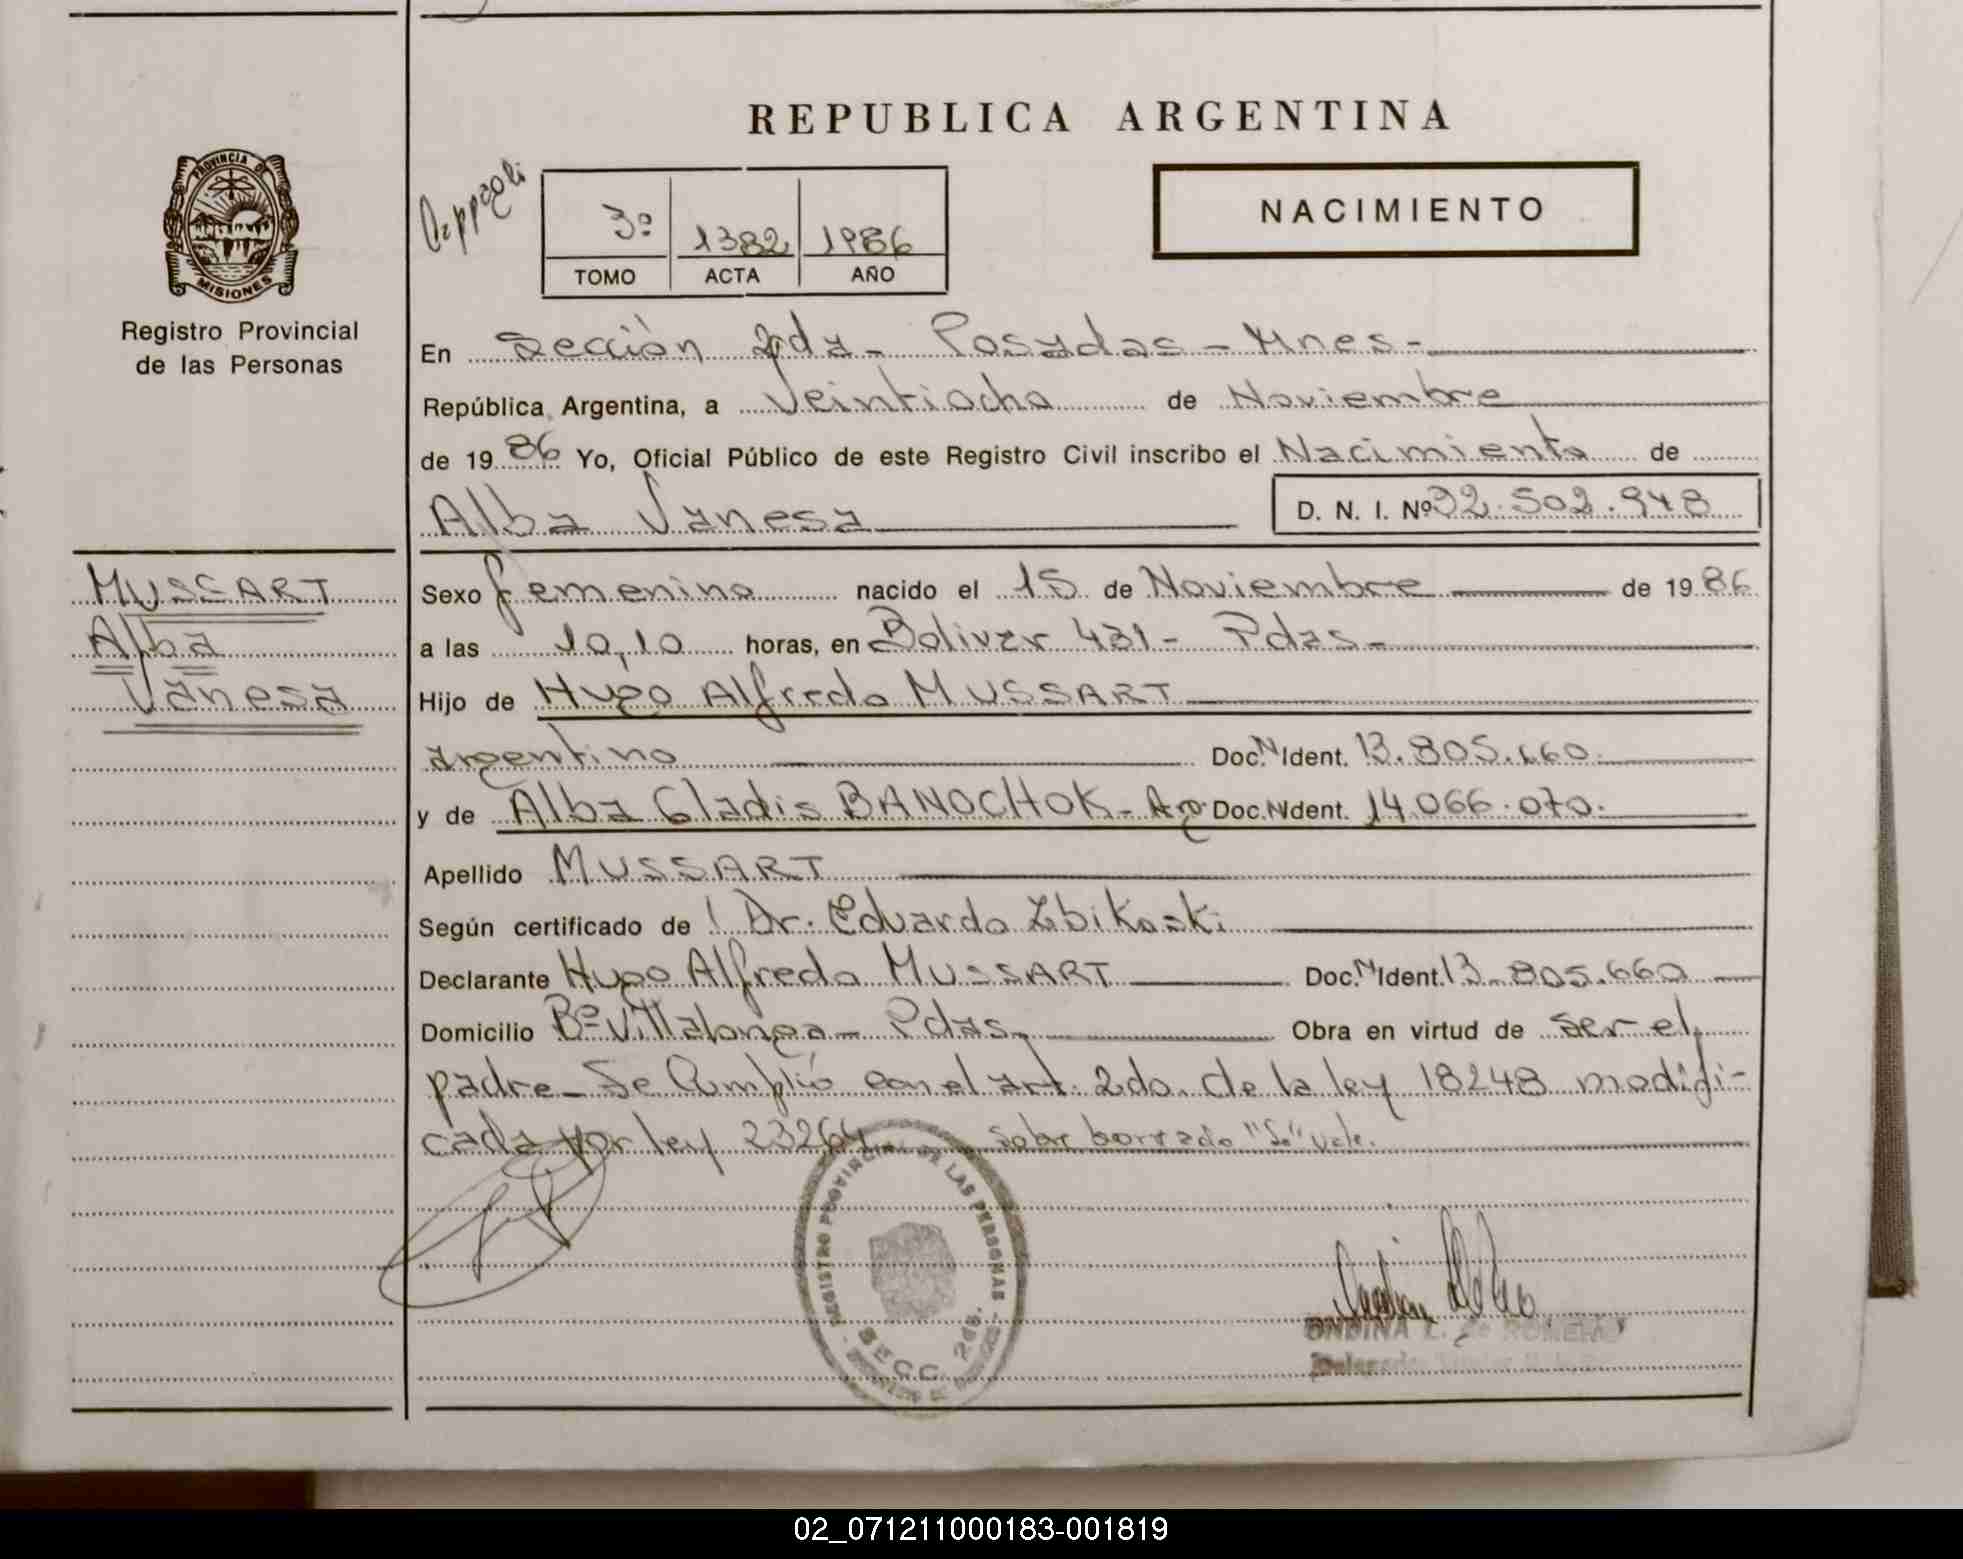 REPUBLICA ARGENTINA
PROVINCIA DE
MISIONES
Registro Provincial
de las Personas
3º 1382 1986
TOMO ACTA AÑO
NACIMIENTO
En Sección 2da - Posadas - Mnes -
República Argentina, a Veintiocho de Noviembre
de 1986 Yo, Oficial Público de este Registro Civil inscribo el Nacimiento de
Alba Vanesa D. N. I. Nº 32.502.948
MUSSART
Alba
Vanesa
Sexo femenino nacido el 15 de Noviembre de 1986
a las 10,10 horas, en Bolivar 431 - Pdas -
Hijo de Hugo Alfredo MUSSART
argentino Doc. N Ident. 13.805.660
y de Alba Gladis BANOCHOK - Arg Doc. N Ident. 14.066.070.
Apellido MUSSART
Según certificado de Dr. Eduardo Zbikoski
Declarante Hugo Alfredo MUSSART Doc. N Ident. 13.805.660
Domicilio Bº Villalonga - Pdas - Obra en virtud de ser el
padre - Se Cumplió con el art. 2do. de la ley 18248 modifi-
cada por ley 23264 sobre borrado "So" vale.
REGISTRO PROVINCIAL DE LAS PERSONAS
SECC. 2da.
ONDINA L. de ROMERO
02_071211000183-001819